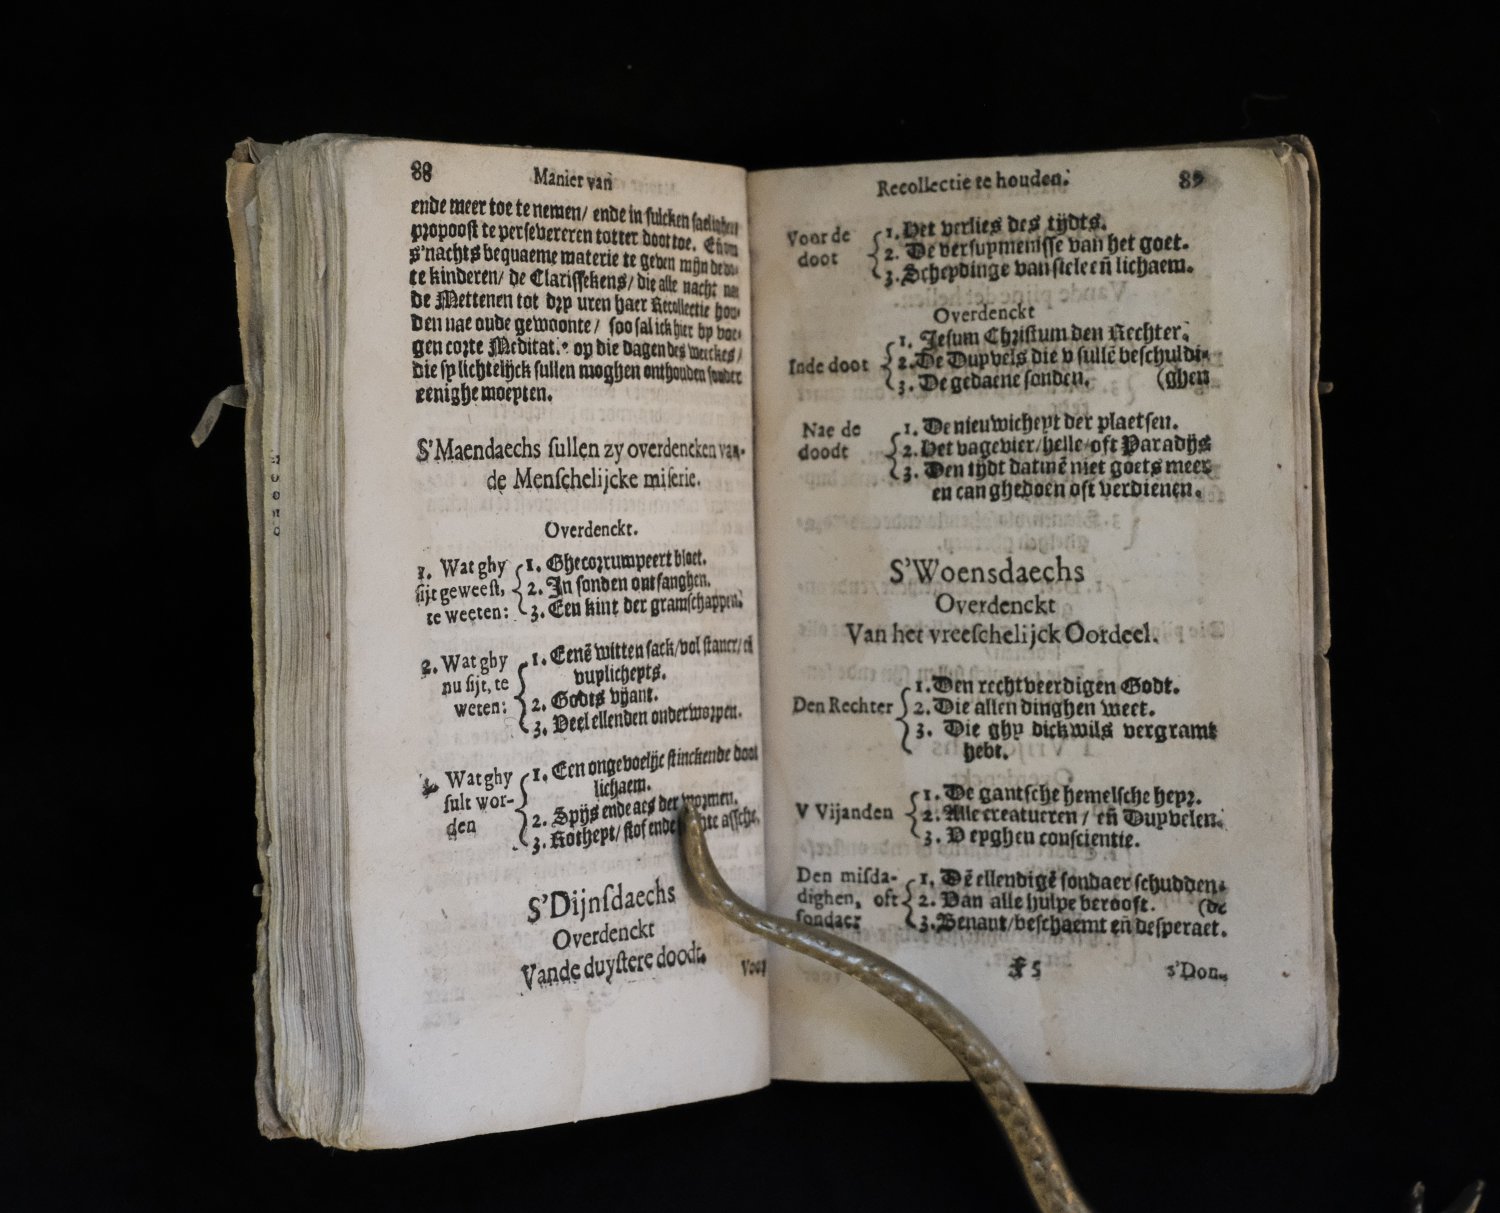 88
Manier van
ende meer toe te nemen/ ende in sulcken
propoost te persevereren totter doot toe.
s'nachts bequaeme materie te geven mijn
te kinderen/ de Clarissekens/ die alle nacht
de Mettenen tot dry uren haer Recollectie hou-
den nae oude gewoonte/ soo sal ick hier by voe-
gen corte Meditat. op die dagen des weeckes/
die sy lichtelijck sullen moghen onthouden sonder
eenighe moeyten.
S'Maendaechs sullen zy overdencken van-
de Menschelijcke miserie.
Overdenckt.
1. Wat ghy
sijt geweest,
te weeten:
1. Ghecorrumpeert bloet.
2. In sonden ontfanghen.
3. Een kint der gramschappen.
2. Wat ghy
nu sijt, te
weten:
1. Eenē witten sack/ vol stancx/ eñ
vuylicheyts.
2. Godts vyant.
3. Veel ellenden onderworpen.
Wat ghy
sult wor-
den
1. Een ongevoelijc stinckende doot
lichaem.
2. Spijs ende aes der wormen.
3. Rotheyt/ stof ende assche.
S'Dijnsdaechs
Overdenckt
Vande duystere doodt.
Voor
Recollectie te houden.
89
Voor de
doot
1. Het verlies des tydts.
2. De versuymenisse van het goet.
3. Scheydinge van siele eñ lichaem.
Overdenckt
Inde doot
1. Jesum Christum den Rechter.
2. De Duyvels die v sullē beschuldi-
3. De gedaene sonden. (ghen
Nae de
doodt
1. De nieuwicheyt der plaetsen.
2. Het vagevier/ helle oft Paradijs
3. Den tijdt datmē niet goets meer
en can ghedoen oft verdienen.
S'Woensdaechs
Overdenckt
Van het vreeschelijck Oordeel.
Den Rechter
1. Den rechtveerdigen Godt.
2. Die allen dinghen weet.
3. Die ghy dickwils vergramt
hebt.
V Vijanden
1. De gantsche hemelsche heyr.
2. Alle creatueren/ eñ Duyvelen.
3. V eyghen conscientie.
Den misda-
dighen, oft
sondaer
1. Dē ellendigē sondaer schudden-
2. Van alle hulpe berooft. (de
3. Benaut/ beschaemt eñ desperaet.
F 5
s'Don-